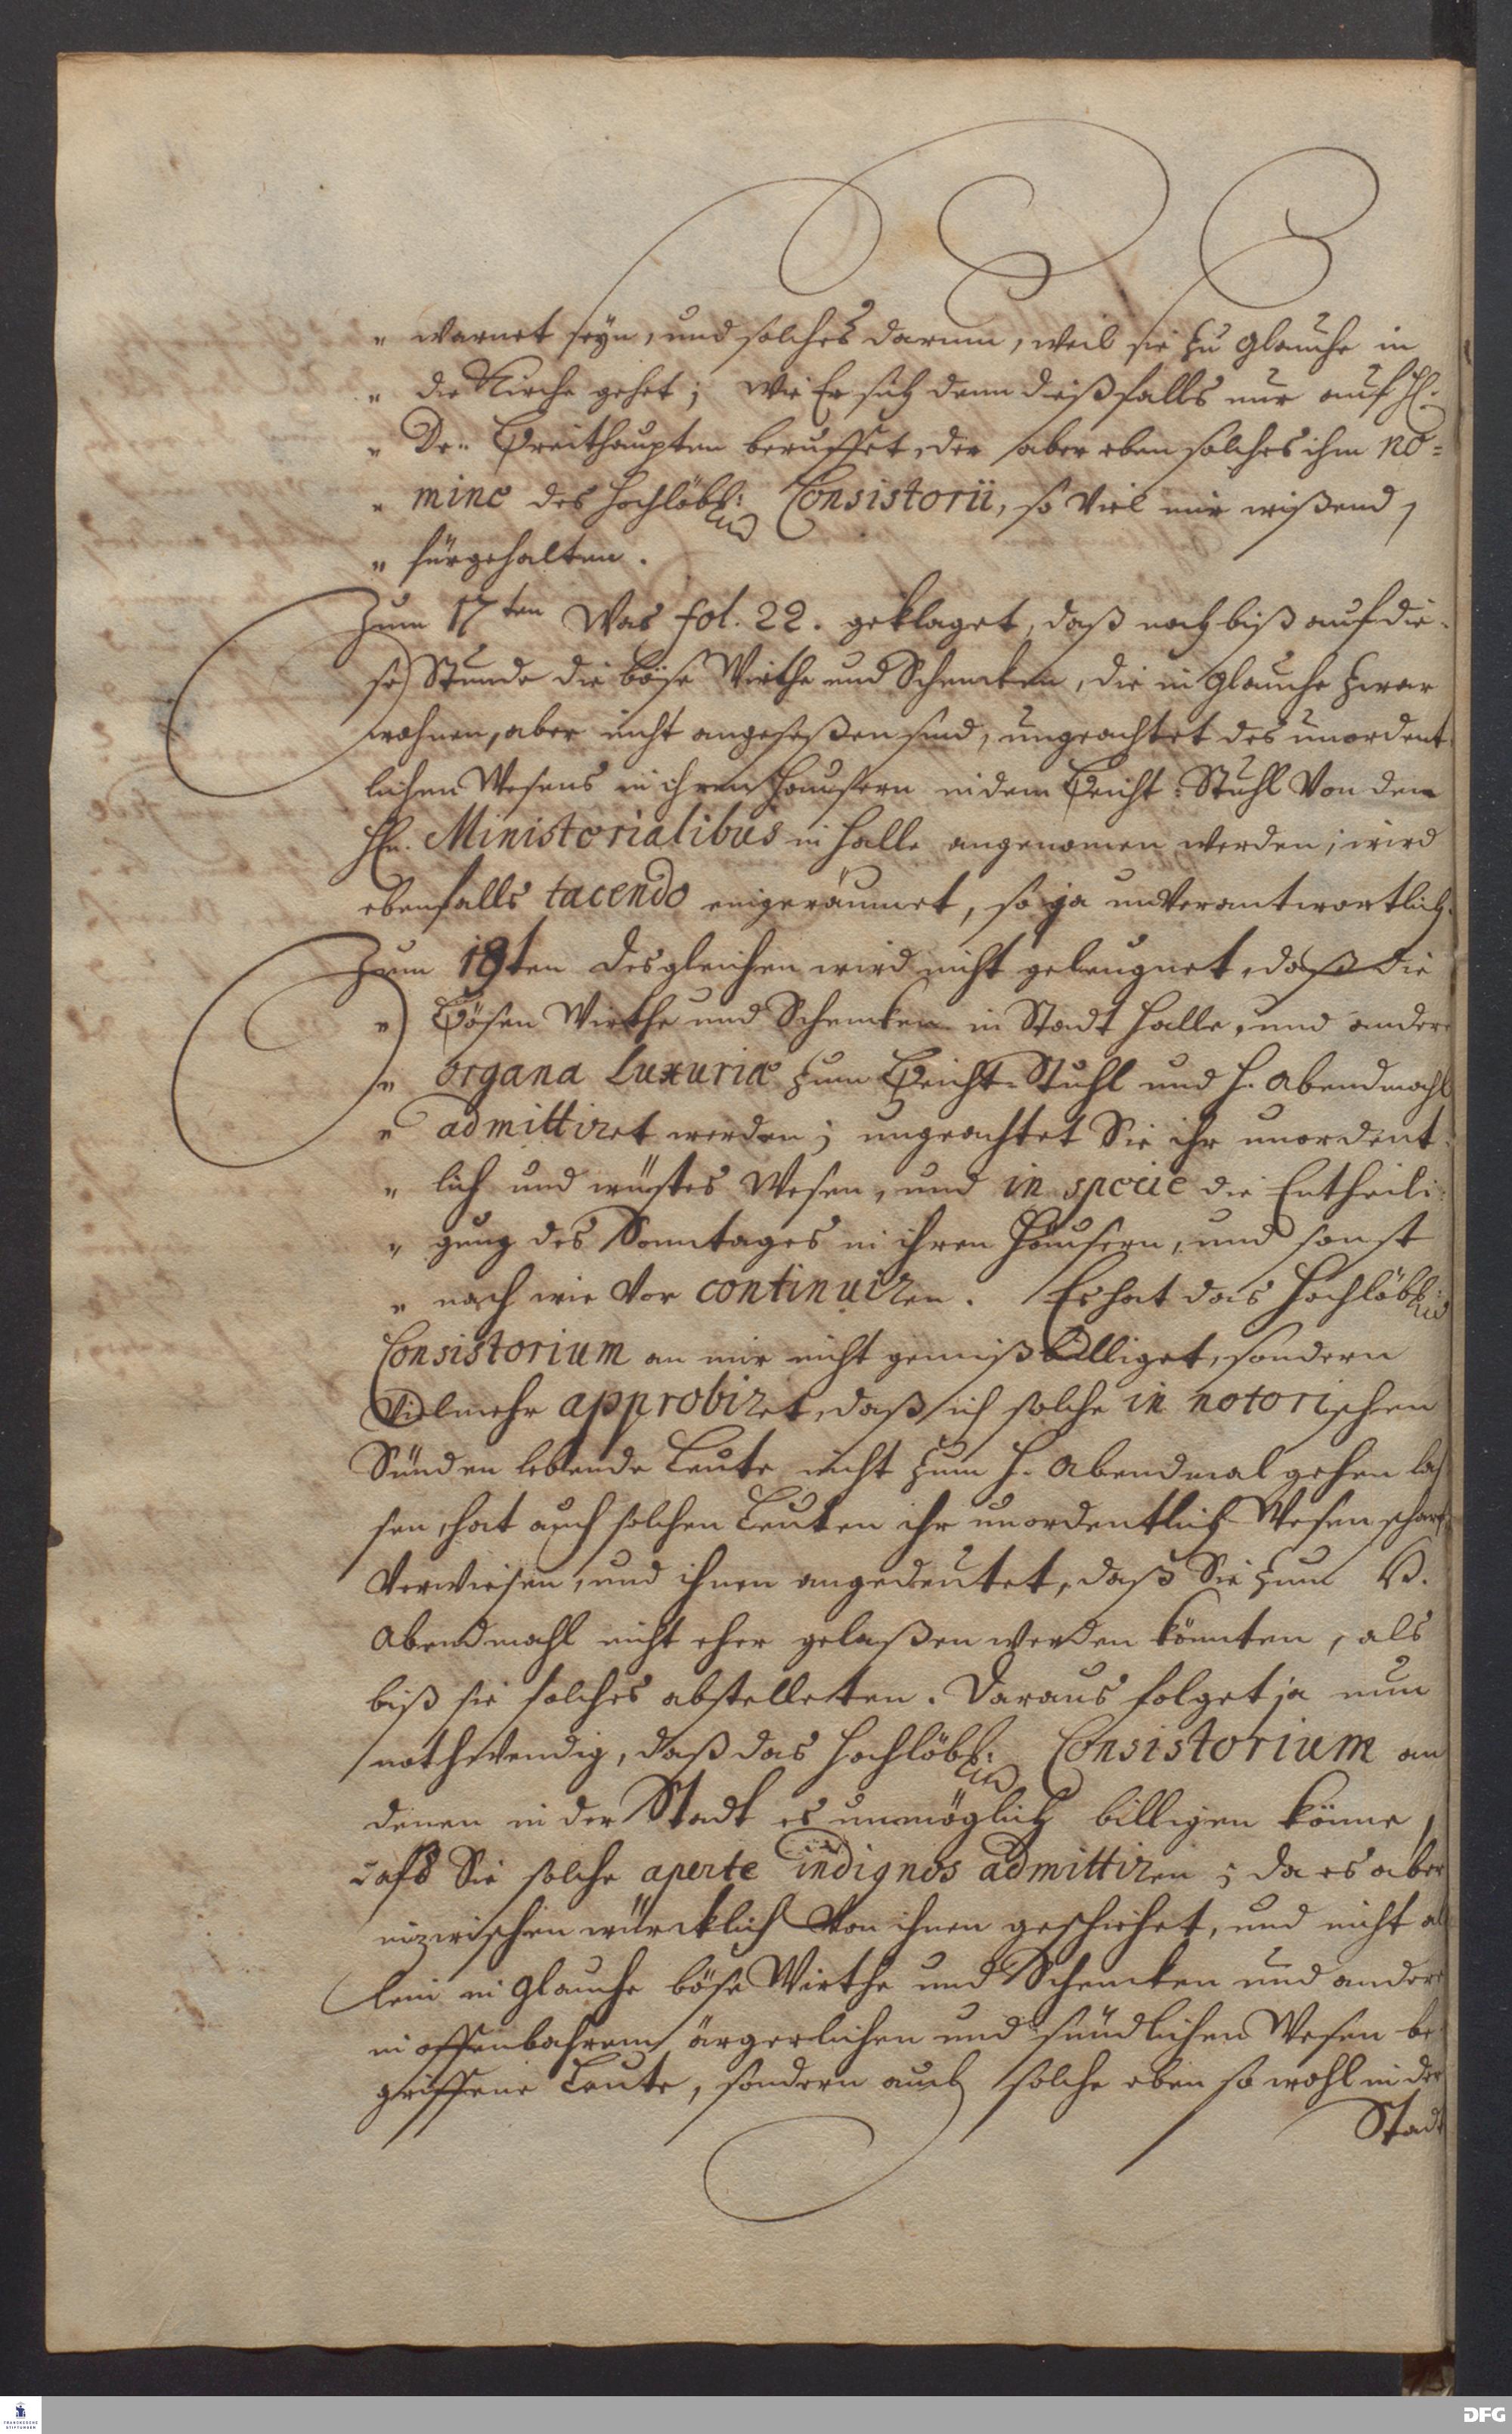 " warnet seyn, und solches darum, weil sie zu Glauche in
" die Kirche gehet; Wie Er sich denn dießfalls nur auf H.
" Dr. Breithaupten beruffet, der aber eben solches ihm no=
" mine des Hochlöbl: Consistorii, so viel mir wißend,
" fürgehalten.
Zum 17ten Was fol. 22. geklaget, daß noch biß auf die=
se Stunde die böse Wirthe und Schencken, die in Glauche zwar
wohnen, aber nicht angeseßen sind, ungeachtet des unordent=
lichen Wesens in ihren Häusern in dem Beicht=Stuhl von den
Hn. Ministerialibus in Halle angenomen werden; wird
ebenfalls tacendo eingeräumet, so ja unverantwortlich.
Zum 18ten desgleichen wird nicht geleugnet, daß die
" Bösen Wirthe und Schencken in Stadt Halle, und andere
" organa Luxuriæ zum Beicht=Stuhl und H. Abendmahl
" admittiret werden; ungeachtet Sie ihr unordent=
" lich und wüstes Wesen, und in specie die Entheili=
" gung des Sonntages in ihren Häusern, und sonst
" nach wie vor continuiren. Es hat das Hochlöbl:
Consistorium an mir nicht gemißbilliget, sondern
vielmehr approbiret, daß ich solche in notorischen
Sünden lebende Leute nicht zum H. Abendmal gehen las
sen, hat auch solchen Leuten ihr unordentlich Wesen scharf
verwiesen, und ihnen angedeutet, daß Sie zum H.
Abendmahl nicht eher gelaßen werden könnten, als
biß sie solches abstelleten. Daraus folget ja nun
nothwendig, daß das Hochlöbl: Consistorium an
denen in der Stadt es unmöglich billigen könne,
daß Sie solche aperte indignos admittiren; da es aber
inzwischen würcklich von ihnen geschiehet, und nicht al
lein in Glauche böse Wirthe und Schencken und andere
in offenbahrem ärgerlichen und sündlichen Wesen be
griffene Leute, sondern auch solche eben so wohl in der
Stadt
FRANCKESCHE
STIFTUNGEN
DFG